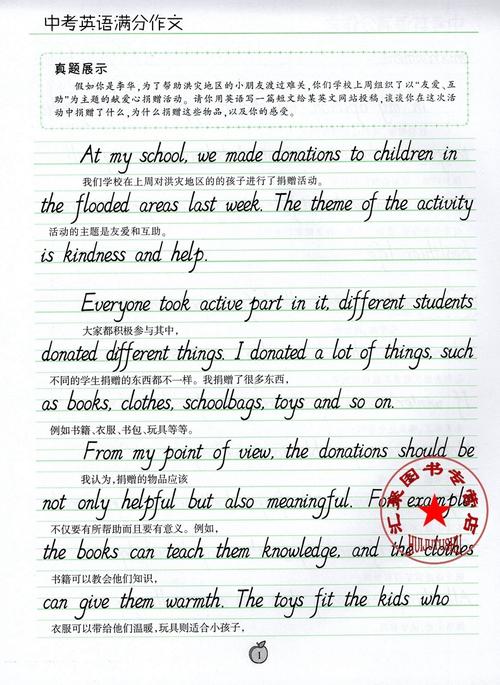 中考英语满分作文
真题展示
假如你是李华,为了帮助洪灾地区的小朋友渡过难关,你们学校上周组织了以“友爱、互
助”为主题的献爱心捐赠活动。请你用英语写一篇短文给某英文网站投稿,谈谈你在这次活
动中捐赠了什么,为什么捐赠这些物品,以及你的感受。
At my school, we made donations to children in
我们学校在上周对洪灾地区的的孩子进行了捐赠活动。
the flooded areas last week. The theme of the activity
活动的主题是友爱和互助。
is kindness and help.
Everyone took active part in it, different students
大家都积极参与其中,
donated different things. I donated a lot of things, such
不同的学生捐赠的东西都不一样。我捐赠了很多东西,
as books, clothes, schoolbags, toys and so on.
例如书籍、衣服、书包、玩具等等。
From my point of view, the donations should be
我认为,捐赠的物品应该
not only helpful but also meaningful. For example
不仅要有所帮助而且要有意义。例如,
the books can teach them knowledge, and the clothes
书籍可以教会他们知识,
can give them warmth. The toys fit the kids who
衣服可以带给他们温暖,玩具则适合小孩子,
1
图书专营店